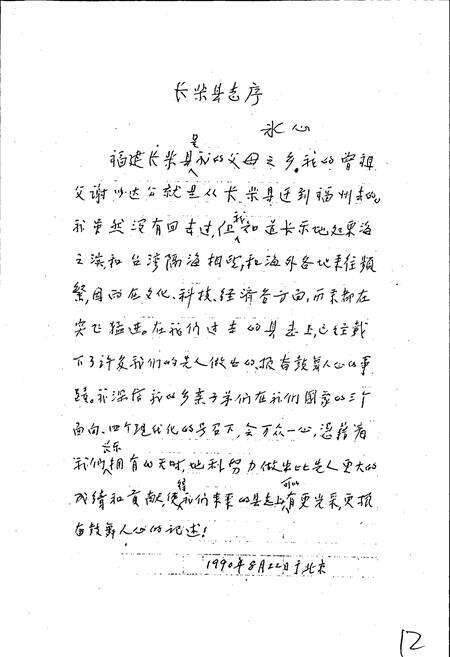 长乐县志序
冰心
福建长乐县是我的父母之乡。我的曾祖
父谢以达公就是从长乐县迁到福州去的。
我虽然没有回去过，但我知道长乐地处东海
之滨，和台湾隔海相望，和海外各地来往频
繁，因而在文化、科技、经济各方面，历来都在
突飞猛进。在我们过去的县志上，已经载
下了许多我们的先人做出的、振奋鼓舞人心的事
迹。我深信我的乡亲子弟们在我们国家的三个
面向、四个现代化的号召下，会万众一心，凭藉着
我们长乐拥有的天时、地利，努力做出比先人更大的
成绩和贡献，使得我们未来的县志上，可以有更光采，更振
奋鼓舞人心的记述！
1990年8月22日于北京
12